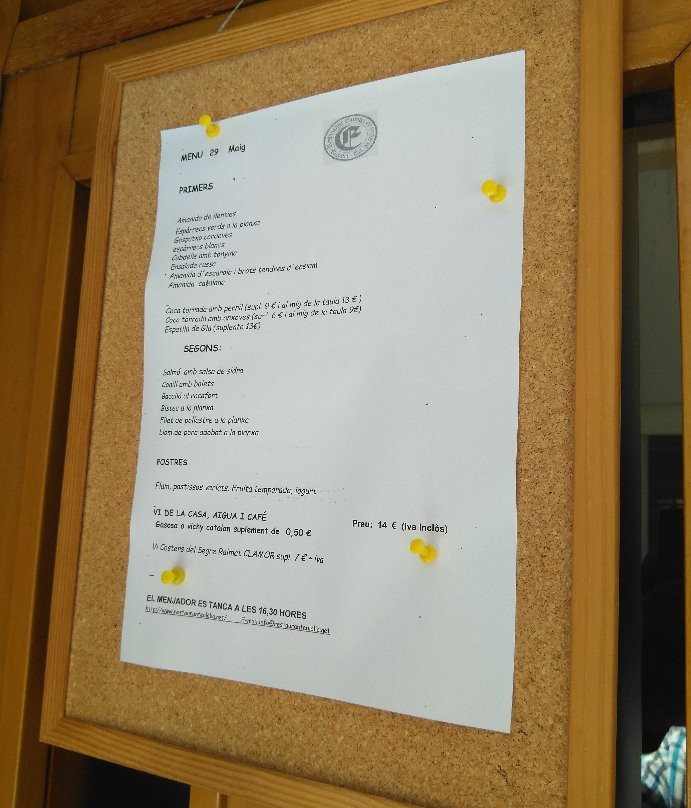 MENU 29 Maig
PRIMERS
Amanida de llenties
Espàrrecs verds a la planxa
Gaspatxo cordoves
espàrrecs blancs
Cabdells amb tonyina
Ensalada russa
Amanida d'escarola i brots tendres d'ensiam
Amanida catalana
Coca torrada amb pernil (supl. 9 € i al mig de la taula 13 €)
Coca torrada amb anxoves (supl. 6 € i al mig de la taula 9€)
Espatlla de Gla (suplento 13€)
SEGONS:
Salmó amb salsa de sidra
Conill amb bolets
Bacallà al rocafort
Bistec a la planxa
Filet de pollastre a la planxa
Llom de porc adobat a la planxa
POSTRES
Flam, pastissos variats, Fruita temporada, iogurt
VI DE LA CASA, AIGUA I CAFÉ
Gasosa o vichy catalan suplement de 0,50 €
Preu: 14 € (Iva Inclòs)
Vi Costers del Segre Raimat CLAMOR supl 7 € + iva
EL MENJADOR ES TANCA A LES 16,30 HORES